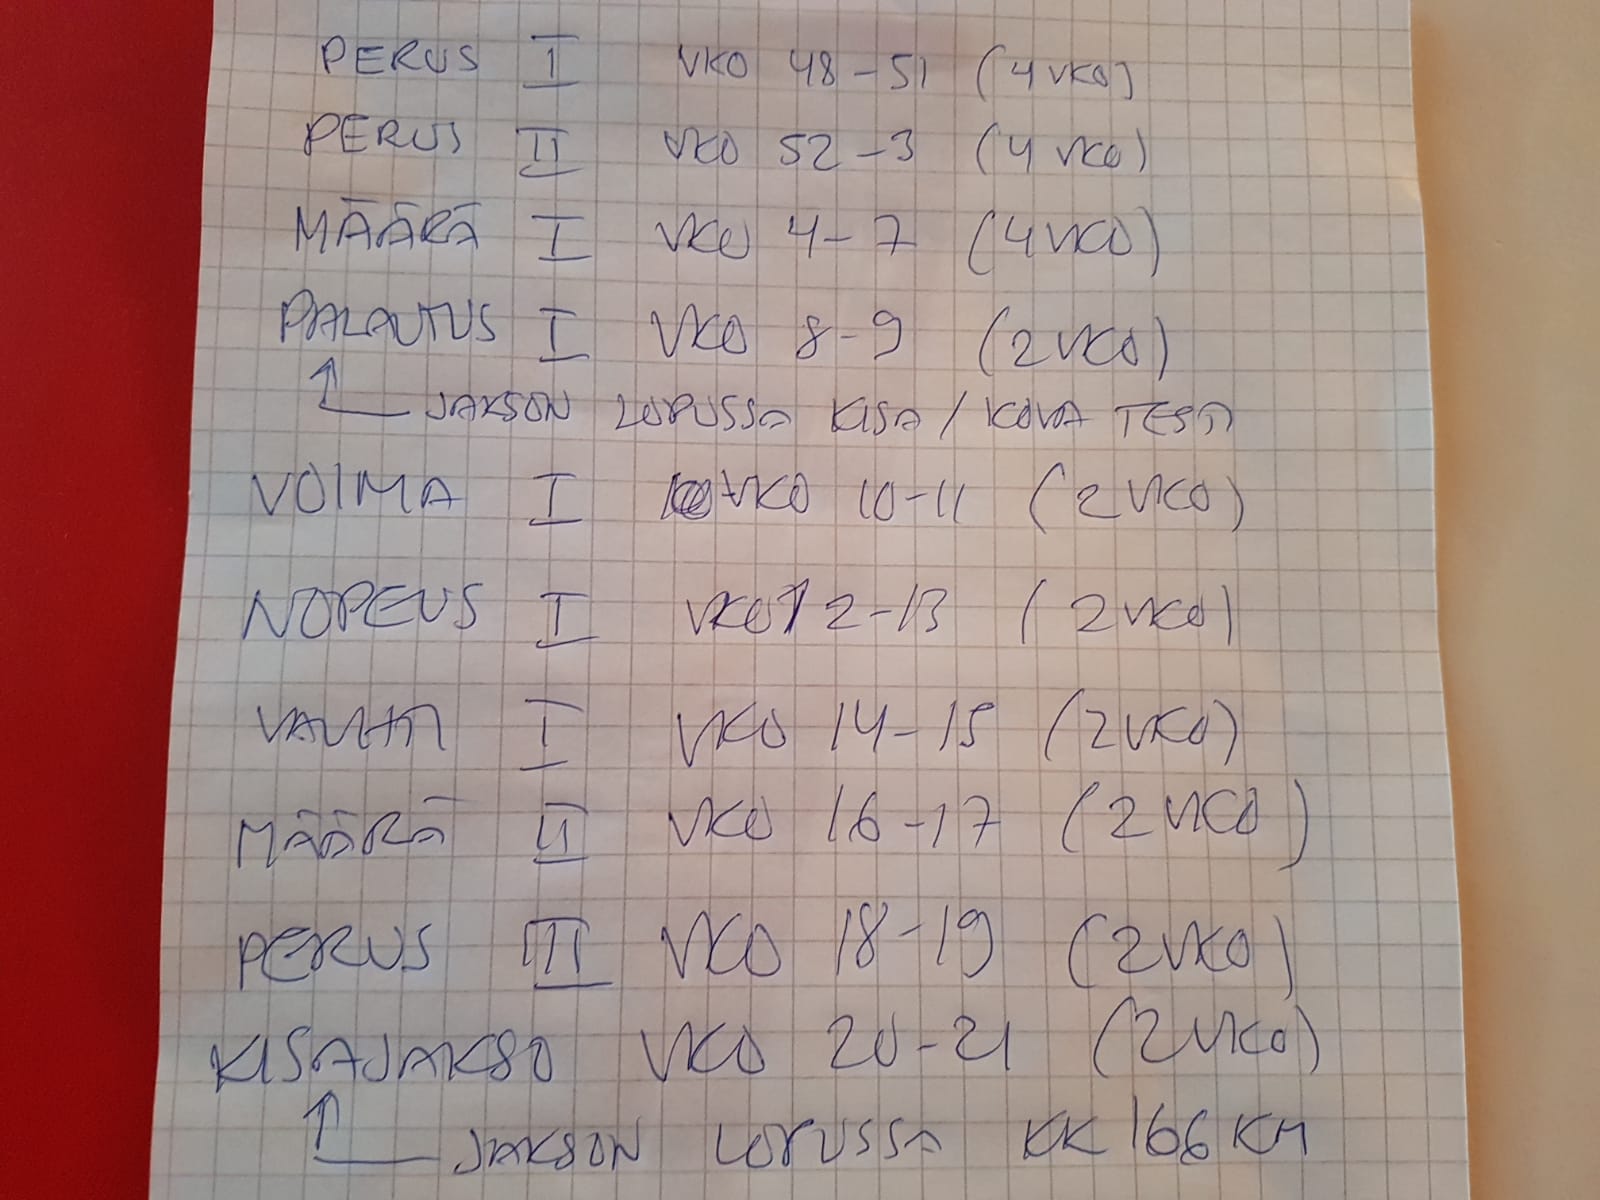 PERUS I VKO 48-51 (4 VKO)
PERUS II VKO 52-3 (4 VKO)
MÄÄRÄ I VKO 4-7 (4 VKO)
PALAUTUS I VKO 8-9 (2 VKO)
JAKSON LOPUSSA KISA / KOVA TESTI
VOIMA I VKO 10-11 (2 VKO)
NOPEUS I VKO 12-13 (2 VKO)
VAUHTI I VKO 14-15 (2 VKO)
MÄÄRÄ II VKO 16-17 (2 VKO)
PERUS III VKO 18-19 (2 VKO)
KISAJAKSO VKO 20-21 (2 VKO)
JAKSON LOPUSSA KK 166 KM